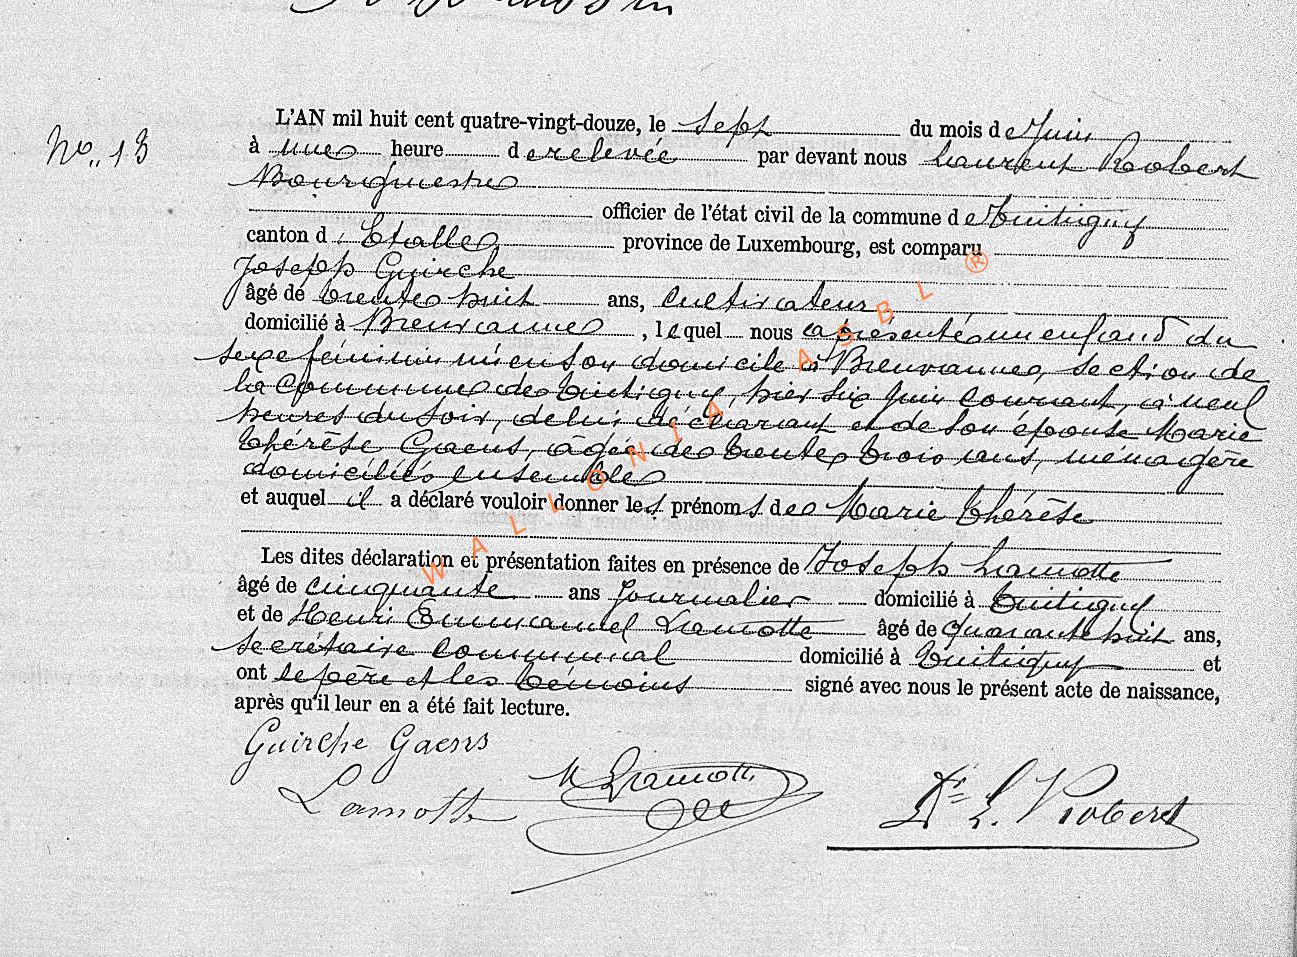 No. 13
L'AN mil huit cent quatre-vingt-douze, le sept du mois de Juin
à une heure de relevée par devant nous Laurent Robert
Bourgmestre
officier de l'état civil de la commune de Tintigny
canton d'Etalle province de Luxembourg, est comparu
Joseph Guirche
âgé de trente huit ans, Cultivateur
domicilié à Breuvanne, lequel nous a présenté un enfant du
sexe féminin né en son domicile à Breuvanne, section de
la Commune de Tintigny, hier six Juin courant, à neuf
heures du soir, de lui déclarant et de son épouse Marie
Thérèse Goens, âgée de trente trois ans, ménagère
domiciliés ensemble
et auquel il a déclaré vouloir donner les prénoms de Marie Thérèse
Les dites déclaration et présentation faites en présence de Joseph Lamotte
âgé de cinquante ans Journalier domicilié à Tintigny
et de Henri Emmanuel Lamotte âgé de quarante huit ans,
secrétaire communal domicilié à Tintigny et
ont le père et les témoins signé avec nous le présent acte de naissance,
après qu'il leur en a été fait lecture.
Guirche Goens
Lamotte Lamotte Dr L. Robert
WALLONIA ASBL ®